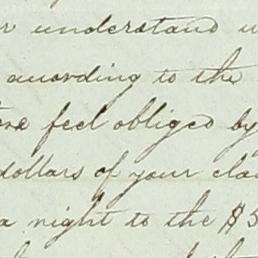 understand
according to the
feel obliged by
dollars of your
a right to the $5